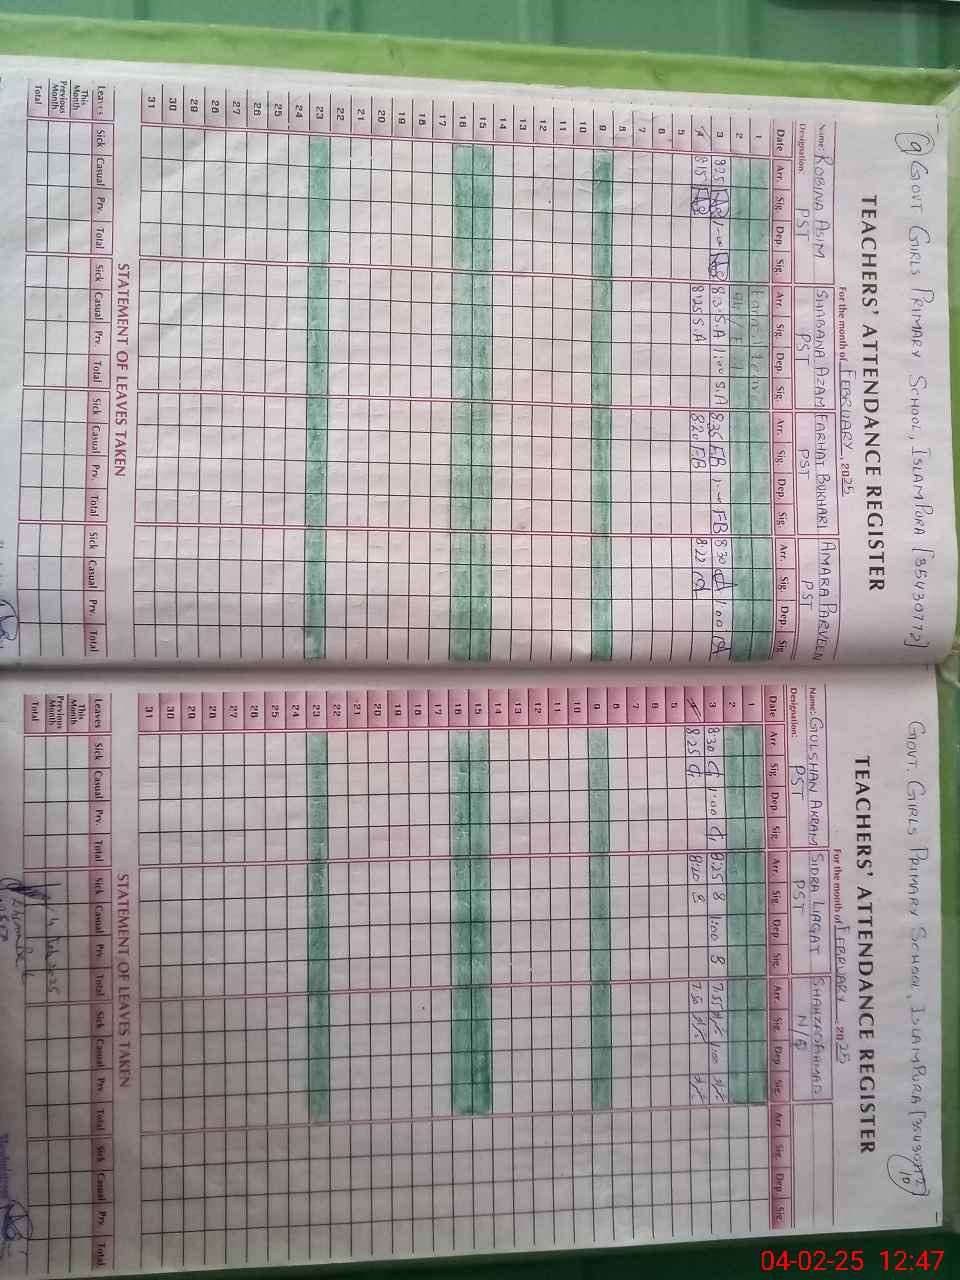 9
GOVT GIRLS PRIMARY SCHOOL, ISLAMPURA [35430772]
TEACHERS' ATTENDANCE REGISTER
For the month of FEBRUARY, 2025
Name: ROBINA ASIM SHABANA AZAM FARHAT BUKHARI AMARA PARVEEN
Designation: PST PST PST PST
Date Arr. Sig. Dep. Sig. Arr. Sig. Dep. Sig. Arr. Sig. Dep. Sig. Arr. Sig. Dep. Sig.
1
2
3 8:25 8:30 S.A 1:00 S.A 8:35 FB FB 8:30 1:00
4 8:15 8:25 S.A 8:20 FB 8:22
5
6
7
8
9
10
11
12
13
14
15
16
17
18
19
20
21
22
23
24
25
26
27
28
29
30
31
STATEMENT OF LEAVES TAKEN
Leaves Sick Casual Prv. Total Sick Casual Prv. Total Sick Casual Prv. Total Sick Casual Prv. Total
This Month
Previous Month
Total
GOVT. GIRLS PRIMARY SCHOOL, ISLAMPURA [35430772]
10
TEACHERS' ATTENDANCE REGISTER
For the month of FEBRUARY 2025
Name: GULSHAN AKRAM SIDRA LIAQAT SHAHZAD AHMAD
Designation: PST PST N/Q
Date Arr. Sig. Dep. Sig. Arr. Sig. Dep. Sig. Arr. Sig. Dep. Sig. Arr. Sig. Dep. Sig.
1
2
3 8:30 G 1:00 G 8:25 S 1:00 S 7:55 1:00
4 8:25 G 8:20 S 7:50
5
6
7
8
9
10
11
12
13
14
15
16
17
18
19
20
21
22
23
24
25
26
27
28
29
30
31
STATEMENT OF LEAVES TAKEN
Leaves Sick Casual Prv. Total Sick Casual Prv. Total Sick Casual Prv. Total Sick Casual Prv. Total
This Month
Previous Month
Total
04-02-25 12:47